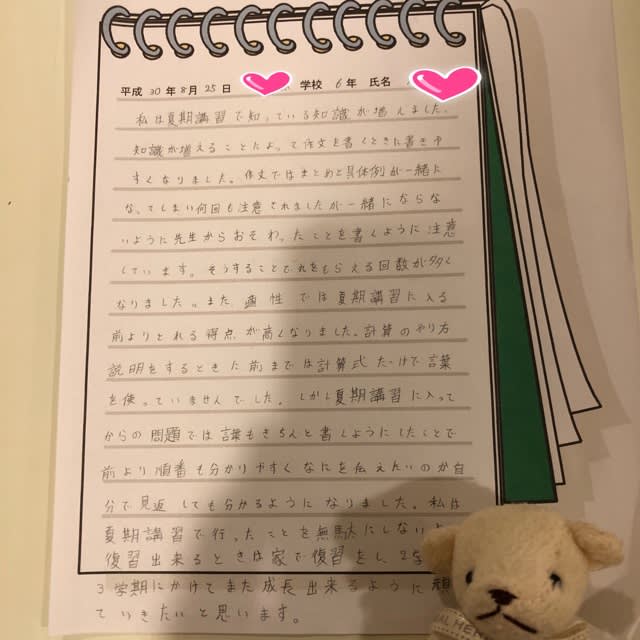 平成30年8月25日 学校 6年 氏名
私は夏期講習で知っている知識が増えました。
知識が増えることによって作文を書くときに書きや
すくなりました。作文ではまとめと具体例が一緒に
なってしまい何回も注意されましたが一緒になら な
いように先生からおそわったことを書くように注意
しています。そうすることで丸をもらえる回数が多く
なりました。また、適性では夏期講習に入る
前よりとれる得点が高くなりました。計算のやり方
説明をするとき、た前までは計算式だけで言葉
を使っていませんでした。しかし夏期講習に入って
からの問題では言葉もきちんと書くようにしたことで
前より順番も分かりやすくなにを伝えたいのか自
分で見返しても分かるようになりました。私は
夏期講習で行ったことを無駄にしない
復習出来るときは家で復習をし、2学
3学期にかけてまた成長出来るように頑
ていきたいと思います。